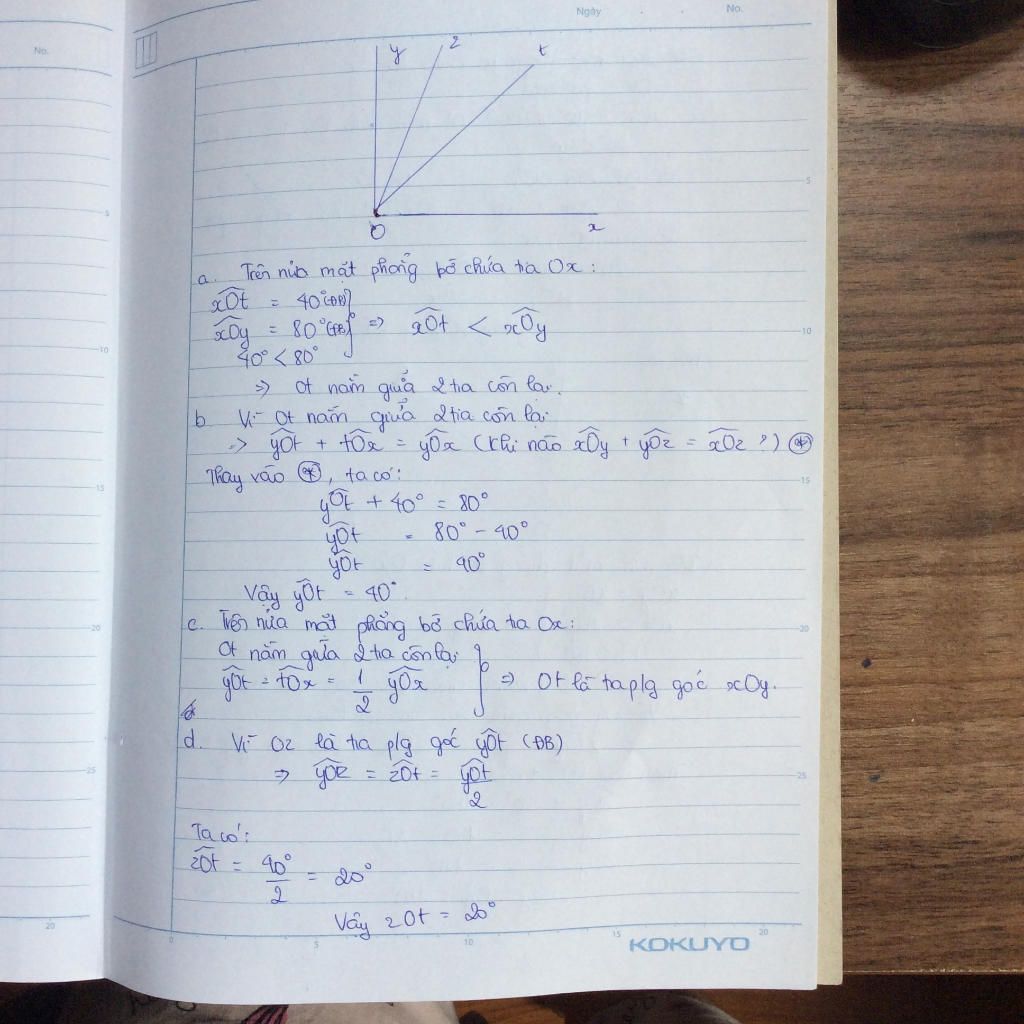 No.
Ngày . . No.
y z t
O x
a. Trên nửa mặt phẳng bờ chứa tia Ox:
xOt = 40° (ĐB)
xOy = 80° (ĐB) => xOt < xOy
40° < 80°
=> Ot nằm giữa 2 tia còn lại.
b Vì Ot nằm giữa 2 tia còn lại
=> yOt + tOx = yOx (Khi nào xOy + yOz = xOz ?) (*)
Thay vào (*), ta có:
yOt + 40° = 80°
yOt = 80° - 40°
yOt = 40°
Vậy yOt = 40°.
c. Trên nửa mặt phẳng bờ chứa tia Ox:
Ot nằm giữa 2 tia còn lại
yOt = tOx = 1/2 yOx => Ot là tia p/g góc xOy.
d. Vì Oz là tia p/g góc yOt (ĐB)
=> yOz = zOt = yOt/2
Ta có:
zOt = 40°/2 = 20°
Vậy zOt = 20°
KOKUYO